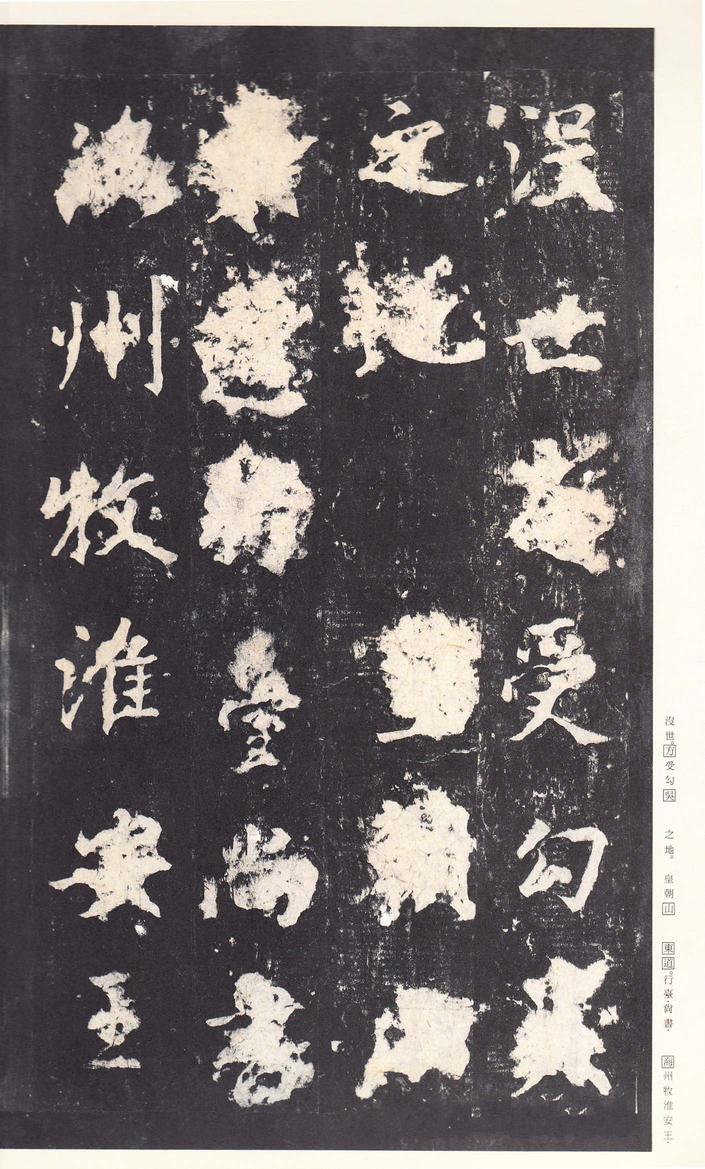 沒世方受勾吳
之地皇朝山
東道行臺尚書
海州牧淮安王
沒世。方受勾吳　之地。皇朝山　東道。行臺·尙書·　海州牧淮安王·